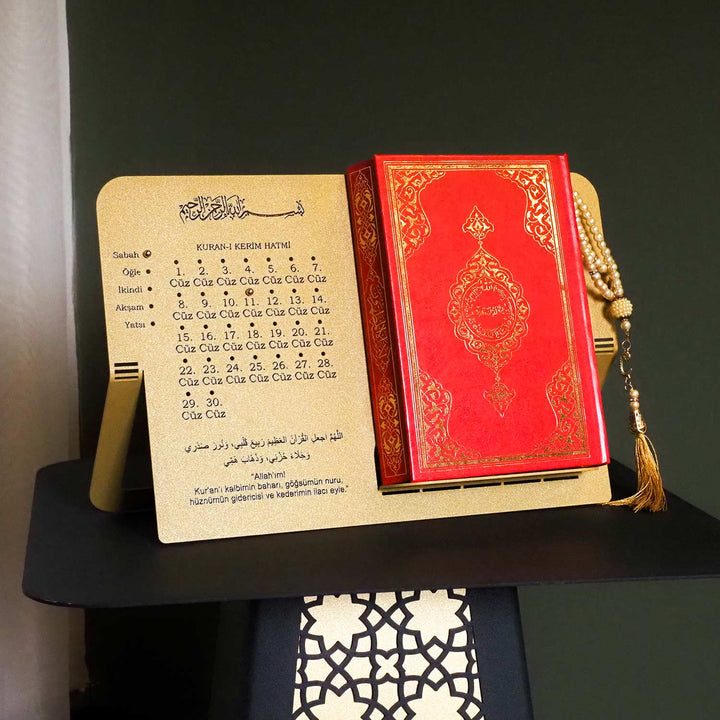 بسم الله الرحمن الرحيم
KURAN-I KERİM HATMİ
Sabah
Öğle
İkindi
Akşam
Yatsı
1. 2. 3. 4. 5. 6. 7.
Cüz Cüz Cüz Cüz Cüz Cüz Cüz
8. 9. 10. 11. 12. 13. 14.
Cüz Cüz Cüz Cüz Cüz Cüz Cüz
15. 16. 17. 18. 19. 20. 21.
Cüz Cüz Cüz Cüz Cüz Cüz Cüz
22. 23. 24. 25. 26. 27. 28.
Cüz Cüz Cüz Cüz Cüz Cüz Cüz
29. 30.
Cüz Cüz
اللَّهُمَّ اجعَلِ القُرْآنَ العَظِيمَ رَبِيعَ قَلْبِي، وَنُورَ صَدْرِي
وَجَلَاءَ حُزْنِي، وَذَهَابَ هَمِّي
"Allah'ım!
Kur'an'ı kalbimin baharı, göğsümün nuru,
hüznümün gidericisi ve kederimin ilacı eyle."